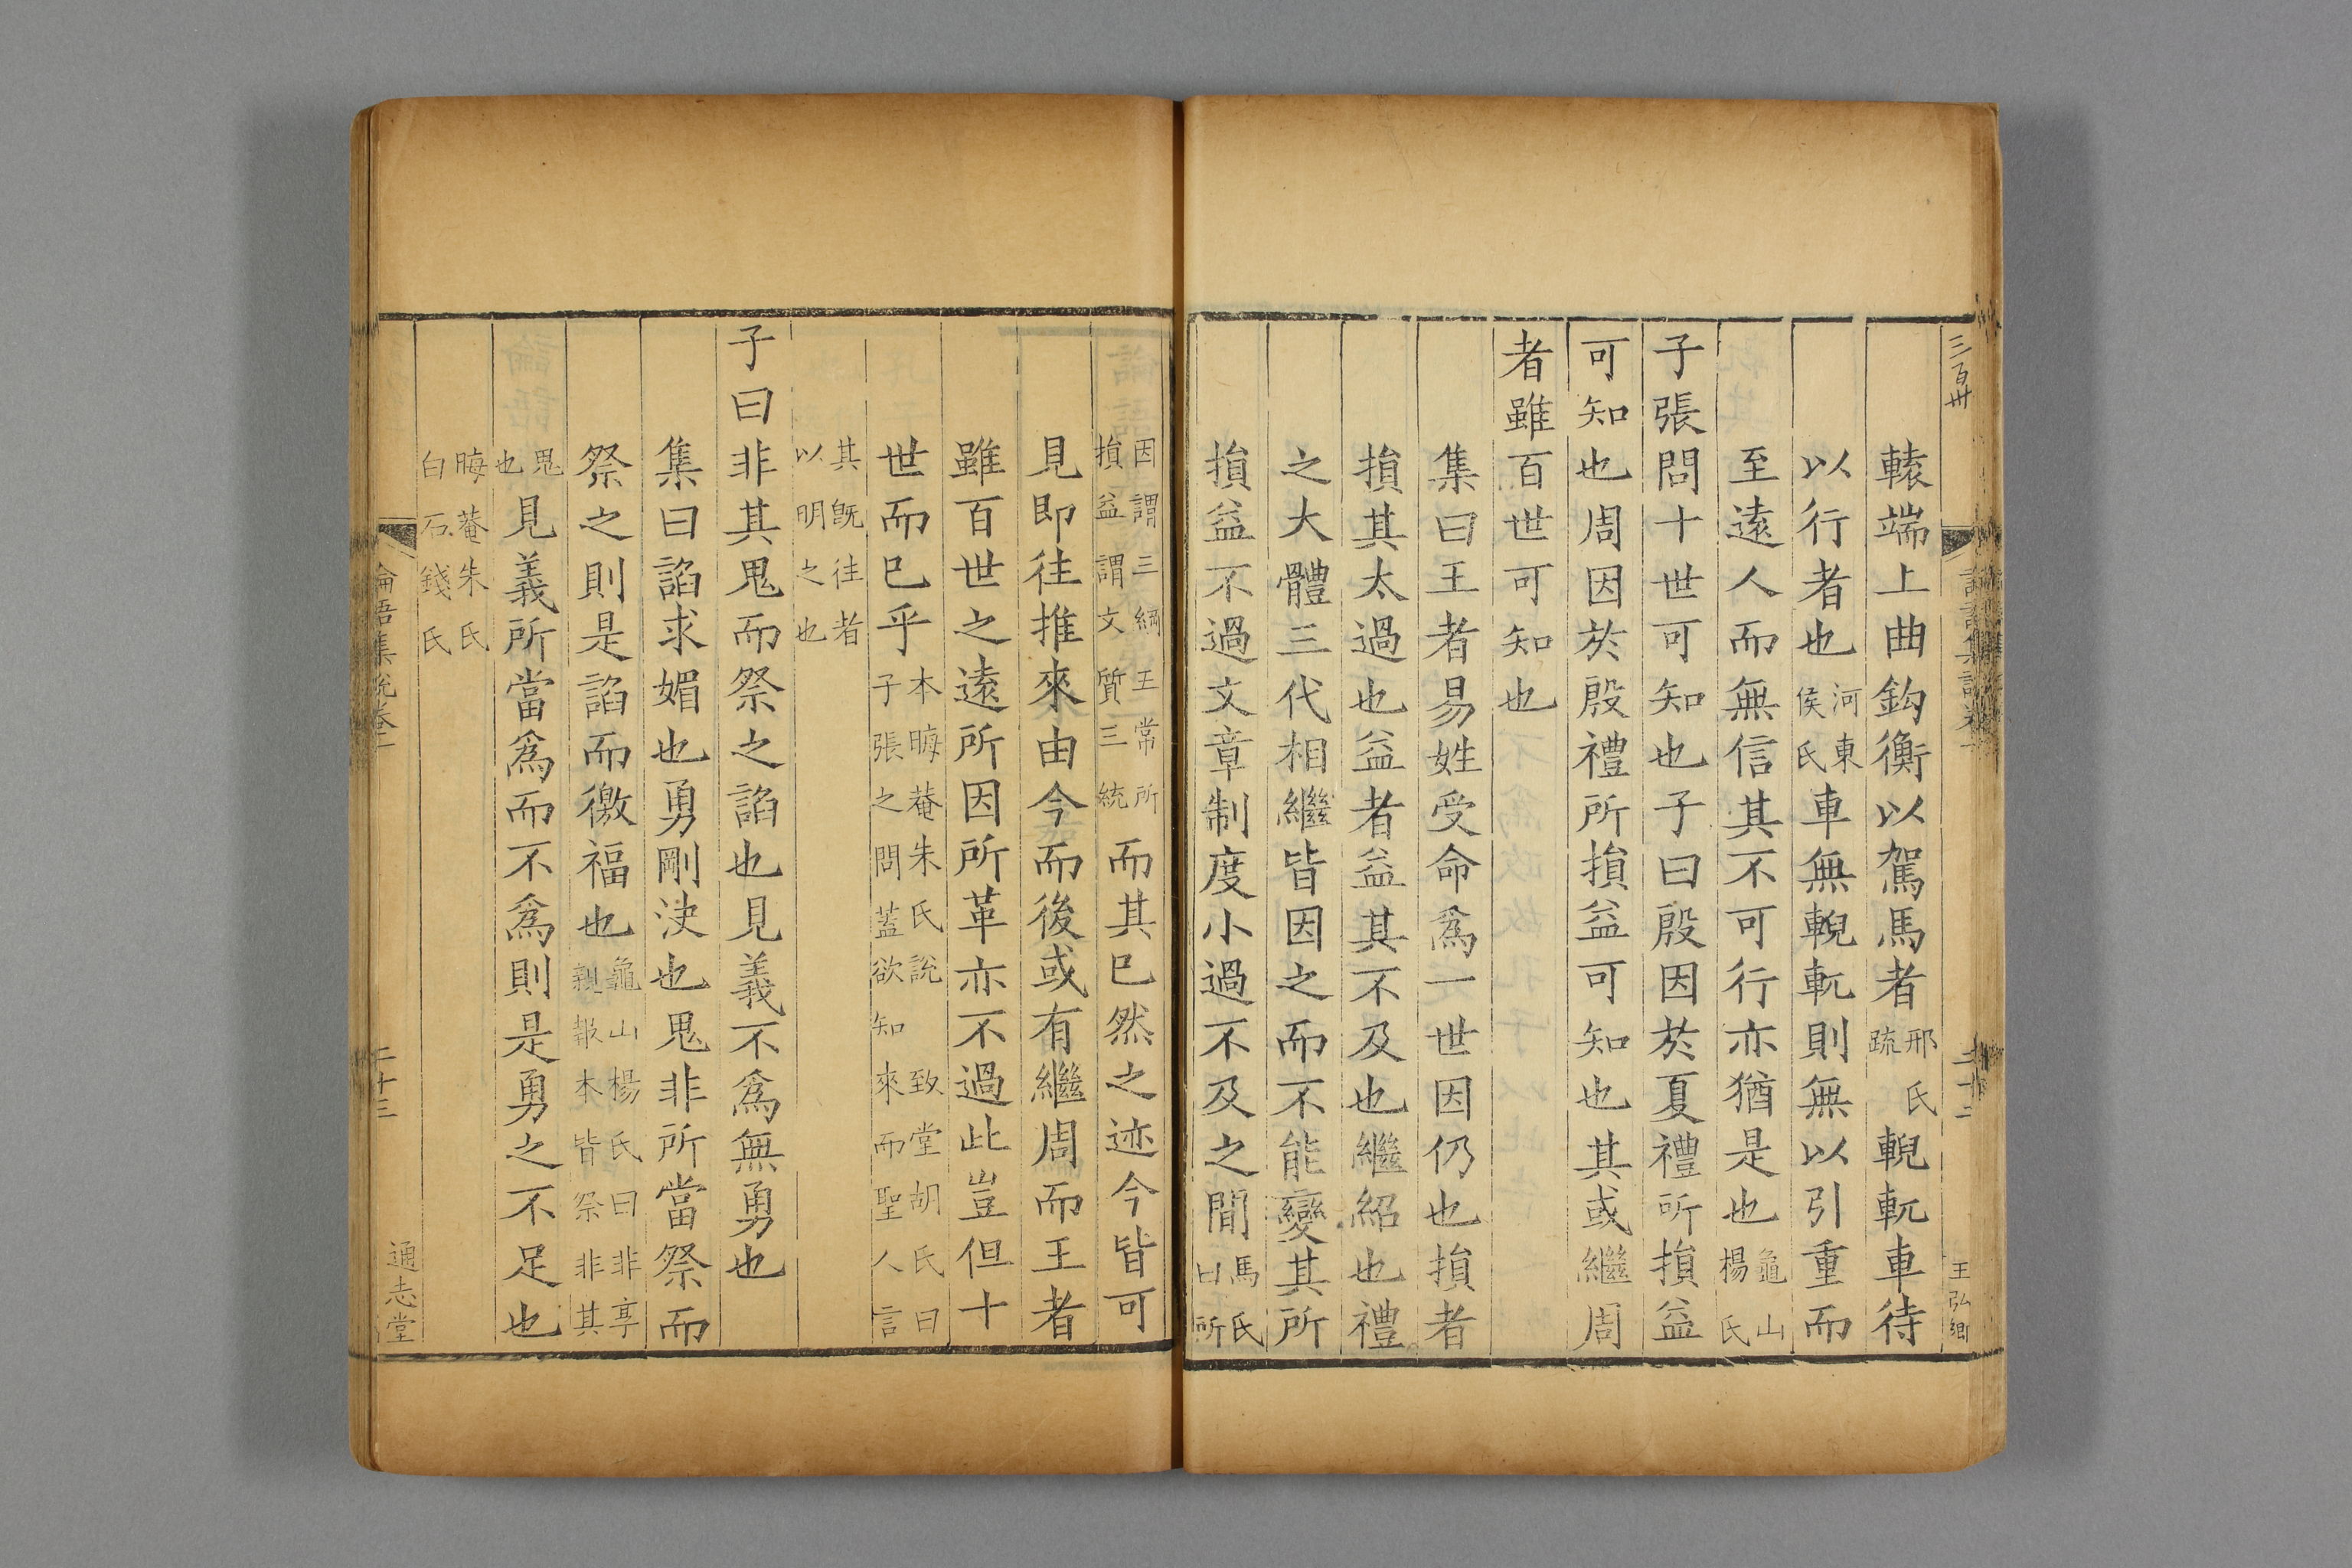 三百卅
王弘緗
轅端上曲鈎衡以駕馬者邢氏疏輗軏車待
以行者也河東侯氏車無輗軏則無以引重而
至遠人而無信其不可行亦猶是也龜山楊氏
子張問十世可知也子曰殷因於夏禮所損益
可知也周因於殷禮所損益可知也其或繼周
者雖百世可知也
集曰王者易姓受命爲一世因仍也損者
損其太過也益者益其不及也繼紹也禮
之大體三代相繼皆因之而不能變其所
損益不過文章制度小過不及之間馬氏曰所
因謂三綱五常所損益謂文質三統而其巳然之迹今皆可
見即往推來由今而後或有繼周而王者
雖百世之遠所因所革亦不過此豈但十
世而巳乎本晦菴朱氏說 致堂胡氏曰子張之問蓋欲知來而聖人言
其旣往者以明之也
子曰非其鬼而祭之諂也見義不爲無勇也
集曰諂求媚也勇剛決也鬼非所當祭而
祭之則是諂而徼福也龜山楊氏曰非享親報本皆祭非其
鬼也見義所當爲而不爲則是勇之不足也
晦菴朱氏白石錢氏
論語集說卷一
二十三
通志堂